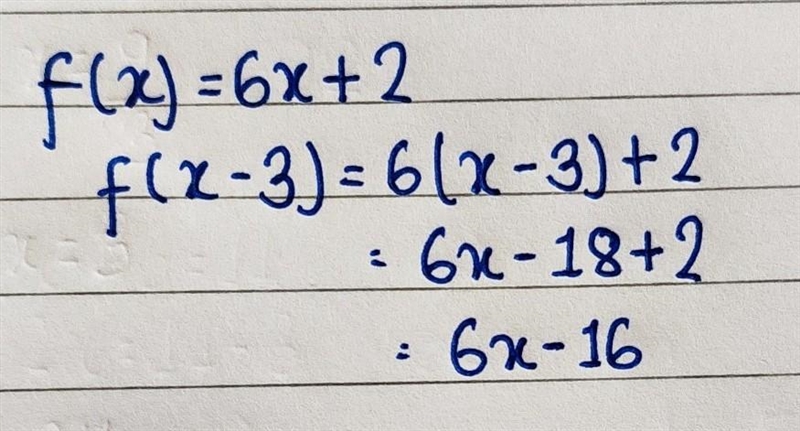 f(x) = 6x + 2
f(x - 3) = 6(x - 3) + 2
= 6x - 18 + 2
= 6x - 16